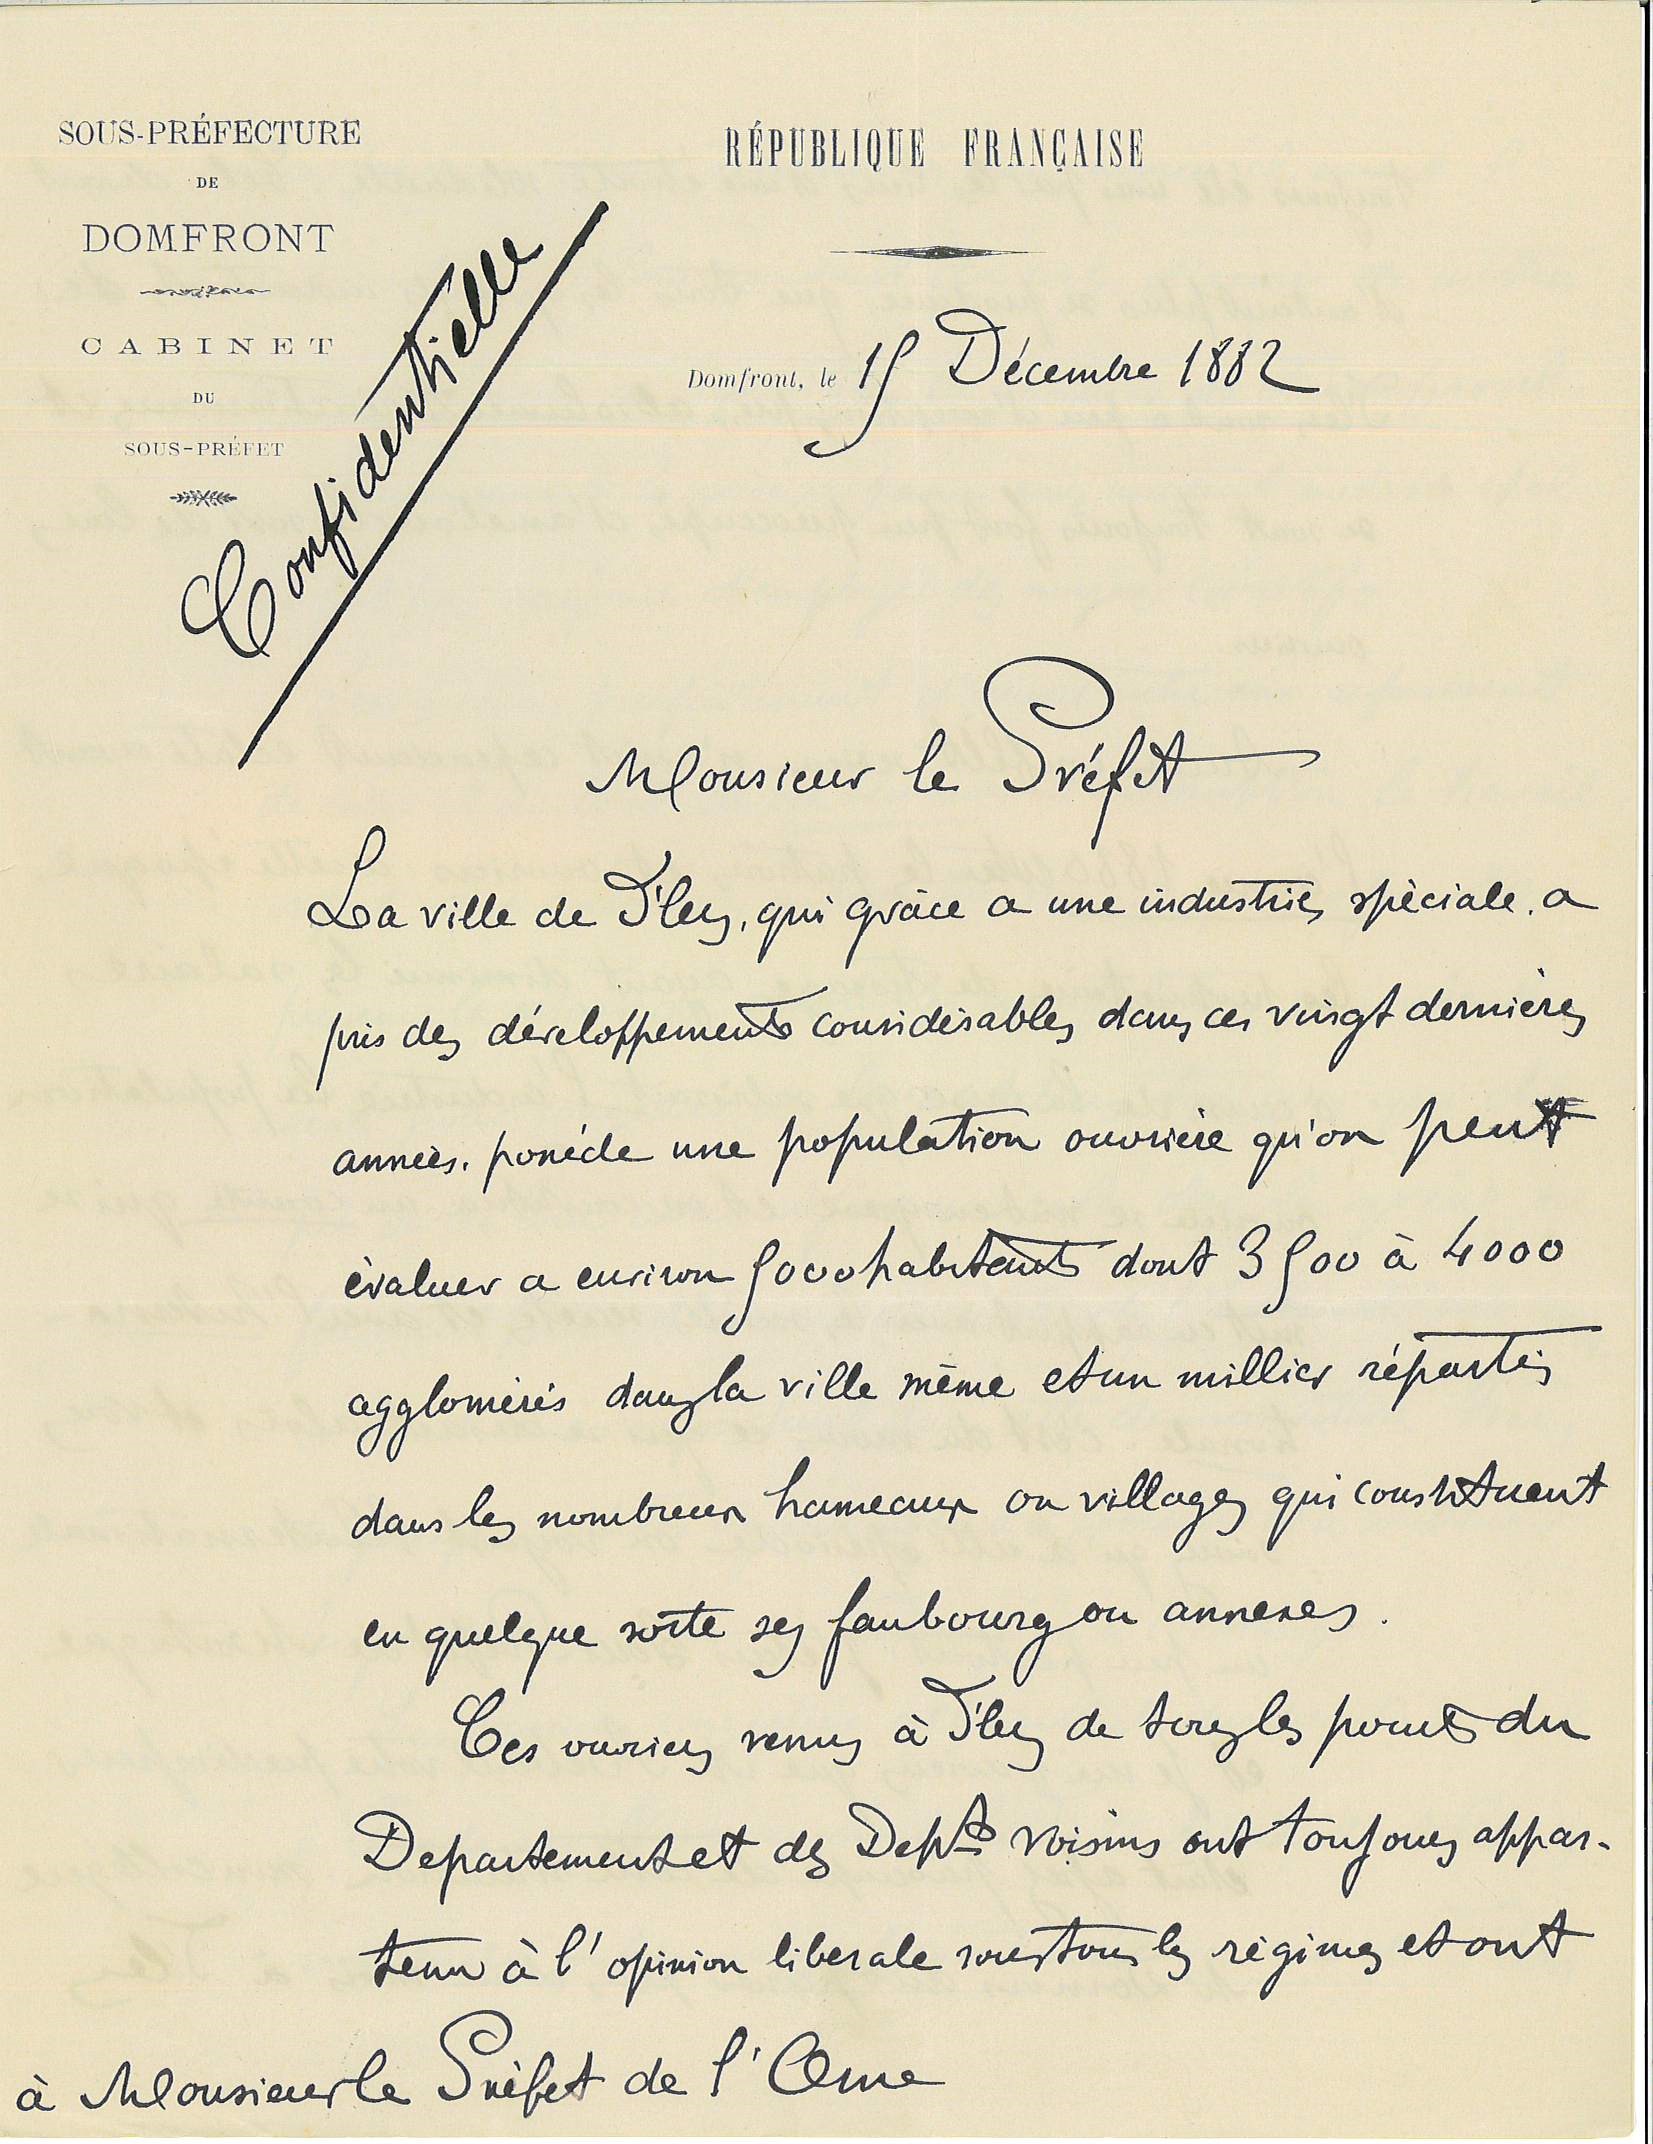 SOUS-PRÉFECTURE
DE
DOMFRONT
CABINET
DU
SOUS-PRÉFET
Confidentielle
RÉPUBLIQUE FRANÇAISE
Domfront, le 15 Décembre 1882
Monsieur le Préfet
La ville de Flers, qui grâce a une industrie, spéciale, a
pris des développements considérables dans ces vingt dernières
années, possède une population ouvrière qu'on peut
évaluer a environ 5000 habitants dont 3500 à 4000
agglomérés dans la ville même et un millier répartis
dans les nombreux hameaux ou villages qui constituent
en quelque sorte ses faubourg ou annexes.
Ces ouvriers venus à Flers de tous les points du
Departement et des Depts voisins ont toujours appar-
tenu à l'opinion liberale sous tous les régimes et ont
à Monsieur le Préfet de l'Orne